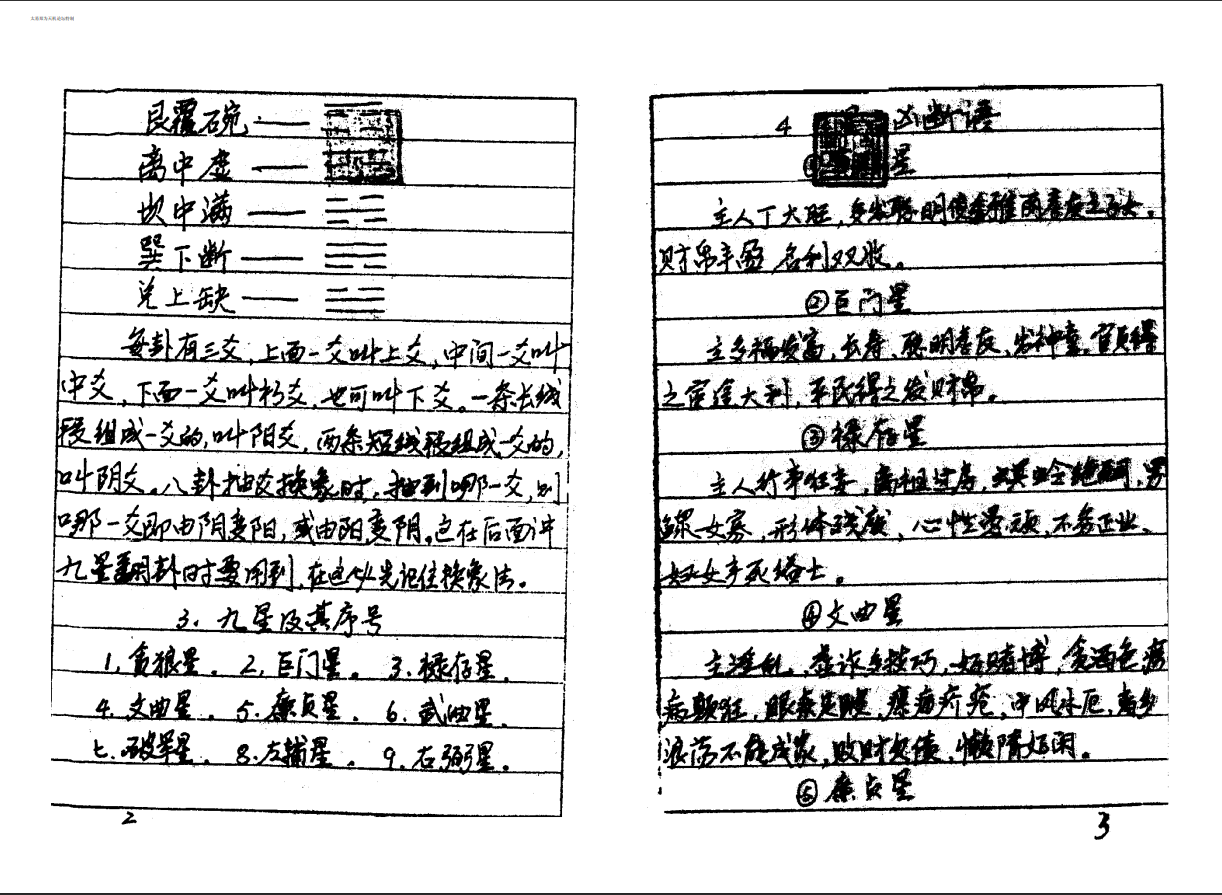 艮覆碗
离中虚
坎中满
巽下断
兑上缺
每卦有三爻,上面一爻叫上爻,中间一爻叫
中爻,下面一爻叫初爻,也可叫下爻。一条长线
段组成一爻的,叫阳爻,两条短线段组成一爻的,
叫阴爻。八卦抽爻换象时,抽到哪一爻,则
哪一爻即由阴变阳,或由阳变阴。这在后面讲
九星翻卦时要用到,在这必先记住换象法。
3. 九星及其序号
1. 贪狼星。 2. 巨门星。 3. 禄存星。
4. 文曲星。 5. 廉贞星。 6. 武曲星。
七. 破军星。 8. 左辅星。 9. 右弼星。
2
4 凶断语
星
主人丁大旺,多发聪明
财帛丰盈,名利双收。
②巨门星
主多福发富,长寿,聪明孝友,出神童,官员得
之官运大利,平民得之发财帛。
③禄存星
主人行事狂妄,离祖过房,绝嗣,男
鳏女寡,形体残废,心性愚顽,不务正业,
妇女产死缢亡。
④文曲星
主淫乱,虚诈多技巧,好赌博,贪酒色,痨
病颠狂,眼疾足,中风水厄,离乡
浪荡不能成家,败财欠债,懒惰好闲。
⑤廉贞星
3